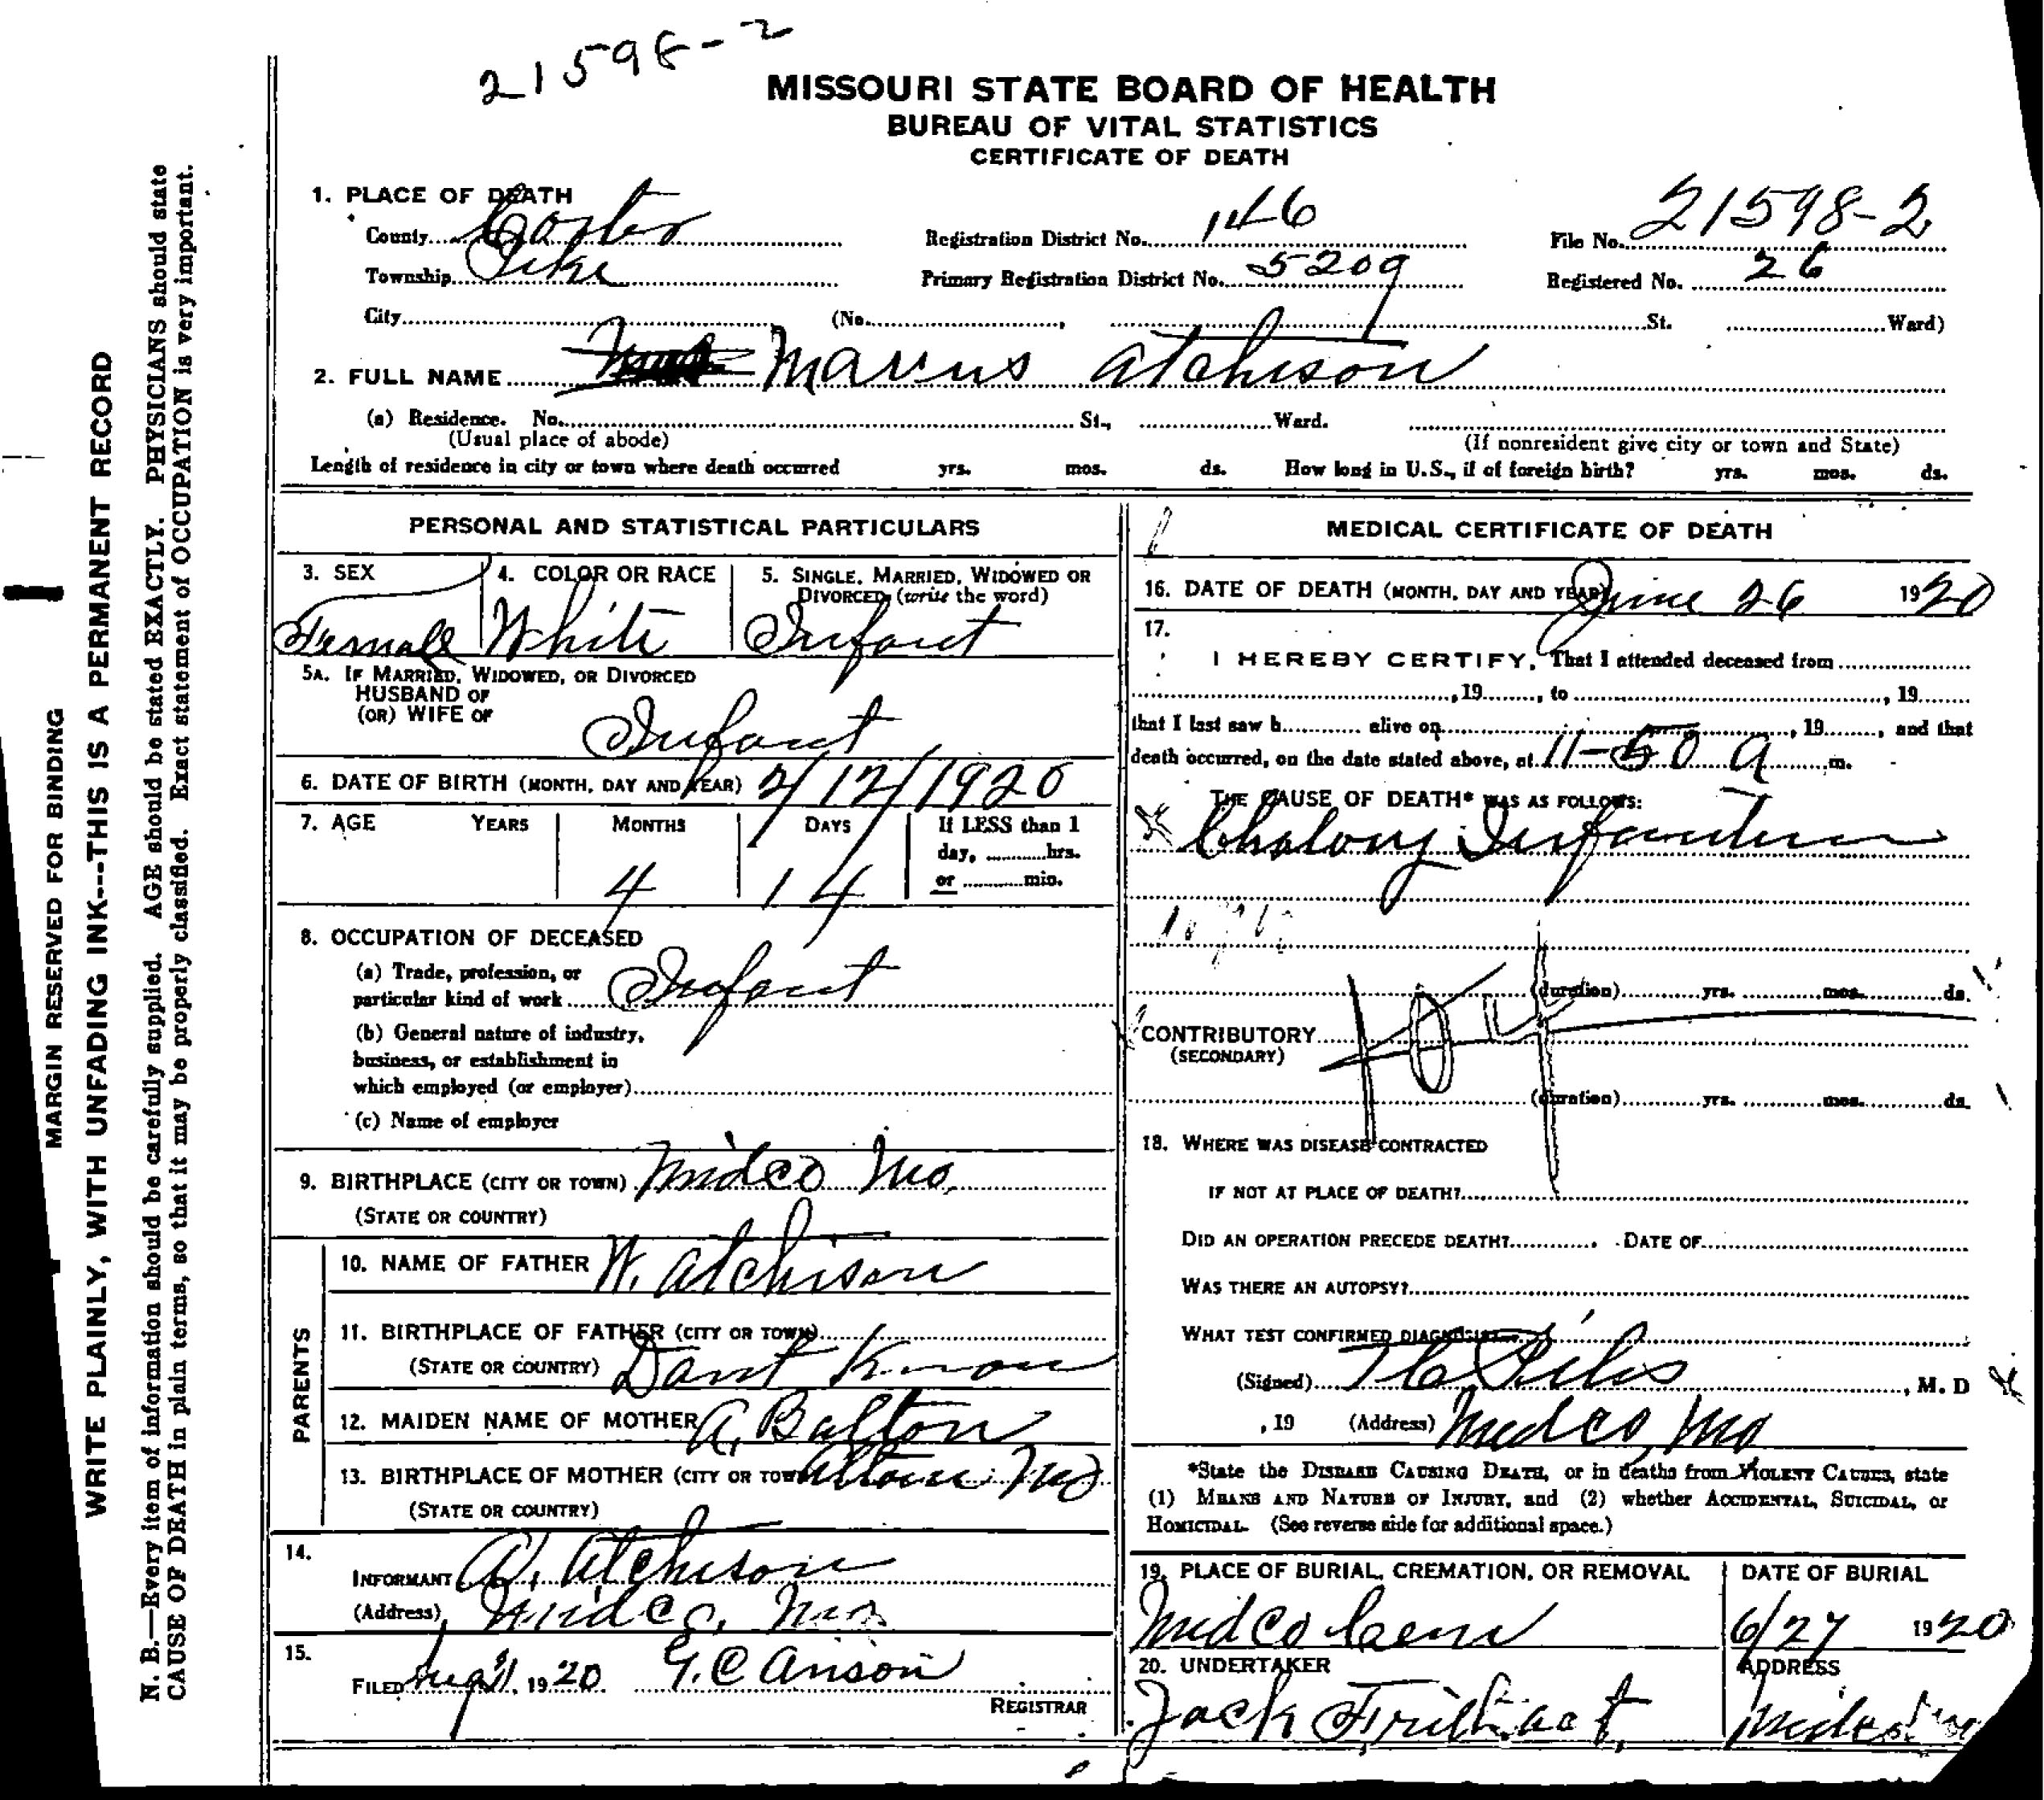 21598-2
MISSOURI STATE BOARD OF HEALTH
BUREAU OF VITAL STATISTICS
CERTIFICATE OF DEATH
1. PLACE OF DEATH
County Carter Registration District No. 146 File No. 21598-2
Township Pike Primary Registration District No. 5209 Registered No. 26
City (No. , St. Ward)
2. FULL NAME Marus Atchison
(a) Residence. No. St., Ward.
(Usual place of abode) (If nonresident give city or town and State)
Length of residence in city or town where death occurred yrs. mos. ds. How long in U.S., if of foreign birth? yrs. mos. ds.
PERSONAL AND STATISTICAL PARTICULARS
3. SEX 4. COLOR OR RACE 5. SINGLE, MARRIED, WIDOWED OR DIVORCED (write the word)
Female White Infant
5A. IF MARRIED, WIDOWED, OR DIVORCED
HUSBAND OF
(OR) WIFE OF Infant
6. DATE OF BIRTH (MONTH, DAY AND YEAR) 2/12/1920
7. AGE YEARS MONTHS DAYS If LESS than 1
day, hrs.
or min.
4 14
8. OCCUPATION OF DECEASED
(a) Trade, profession, or
particular kind of work Infant
(b) General nature of industry,
business, or establishment in
which employed (or employer)
(c) Name of employer
9. BIRTHPLACE (CITY OR TOWN) Midco Mo.
(STATE OR COUNTRY)
PARENTS
10. NAME OF FATHER W. Atchison
11. BIRTHPLACE OF FATHER (CITY OR TOWN)
(STATE OR COUNTRY) Dant Know
12. MAIDEN NAME OF MOTHER A. Balton
13. BIRTHPLACE OF MOTHER (CITY OR TOWN) Alton Mo
(STATE OR COUNTRY)
14.
INFORMANT A. Atchison
(Address) Midco, Mo
15.
FILED Aug 1920 G. C. Anson
REGISTRAR
MEDICAL CERTIFICATE OF DEATH
16. DATE OF DEATH (MONTH, DAY AND YEAR) June 26 1920
17.
I HEREBY CERTIFY, That I attended deceased from
, 19 , to , 19
that I last saw h alive on , 19 , and that
death occurred, on the date stated above, at 11-50 A m.
THE CAUSE OF DEATH* WAS AS FOLLOWS:
Cholory Infantum
(duration) yrs. mos. ds.
CONTRIBUTORY 104
(SECONDARY)
(duration) yrs. mos. ds.
18. WHERE WAS DISEASE CONTRACTED
IF NOT AT PLACE OF DEATH?
DID AN OPERATION PRECEDE DEATH? DATE OF
WAS THERE AN AUTOPSY?
WHAT TEST CONFIRMED DIAGNOSIS?
(Signed) , M. D
, 19 (Address) Midco, Mo
*State the DISEASE CAUSING DEATH, or in deaths from VIOLENT CAUSES, state
(1) MEANS AND NATURE OF INJURY, and (2) whether ACCIDENTAL, SUICIDAL, or
HOMICIDAL. (See reverse side for additional space.)
19. PLACE OF BURIAL, CREMATION, OR REMOVAL DATE OF BURIAL
Midco Cem 6/27 1920
20. UNDERTAKER ADDRESS
Jack Midco Mo
MARGIN RESERVED FOR BINDING
WRITE PLAINLY, WITH UNFADING INK---THIS IS A PERMANENT RECORD
N. B.—Every item of information should be carefully supplied. AGE should be stated EXACTLY. PHYSICIANS should state
CAUSE OF DEATH in plain terms, so that it may be properly classified. Exact statement of OCCUPATION is very important.